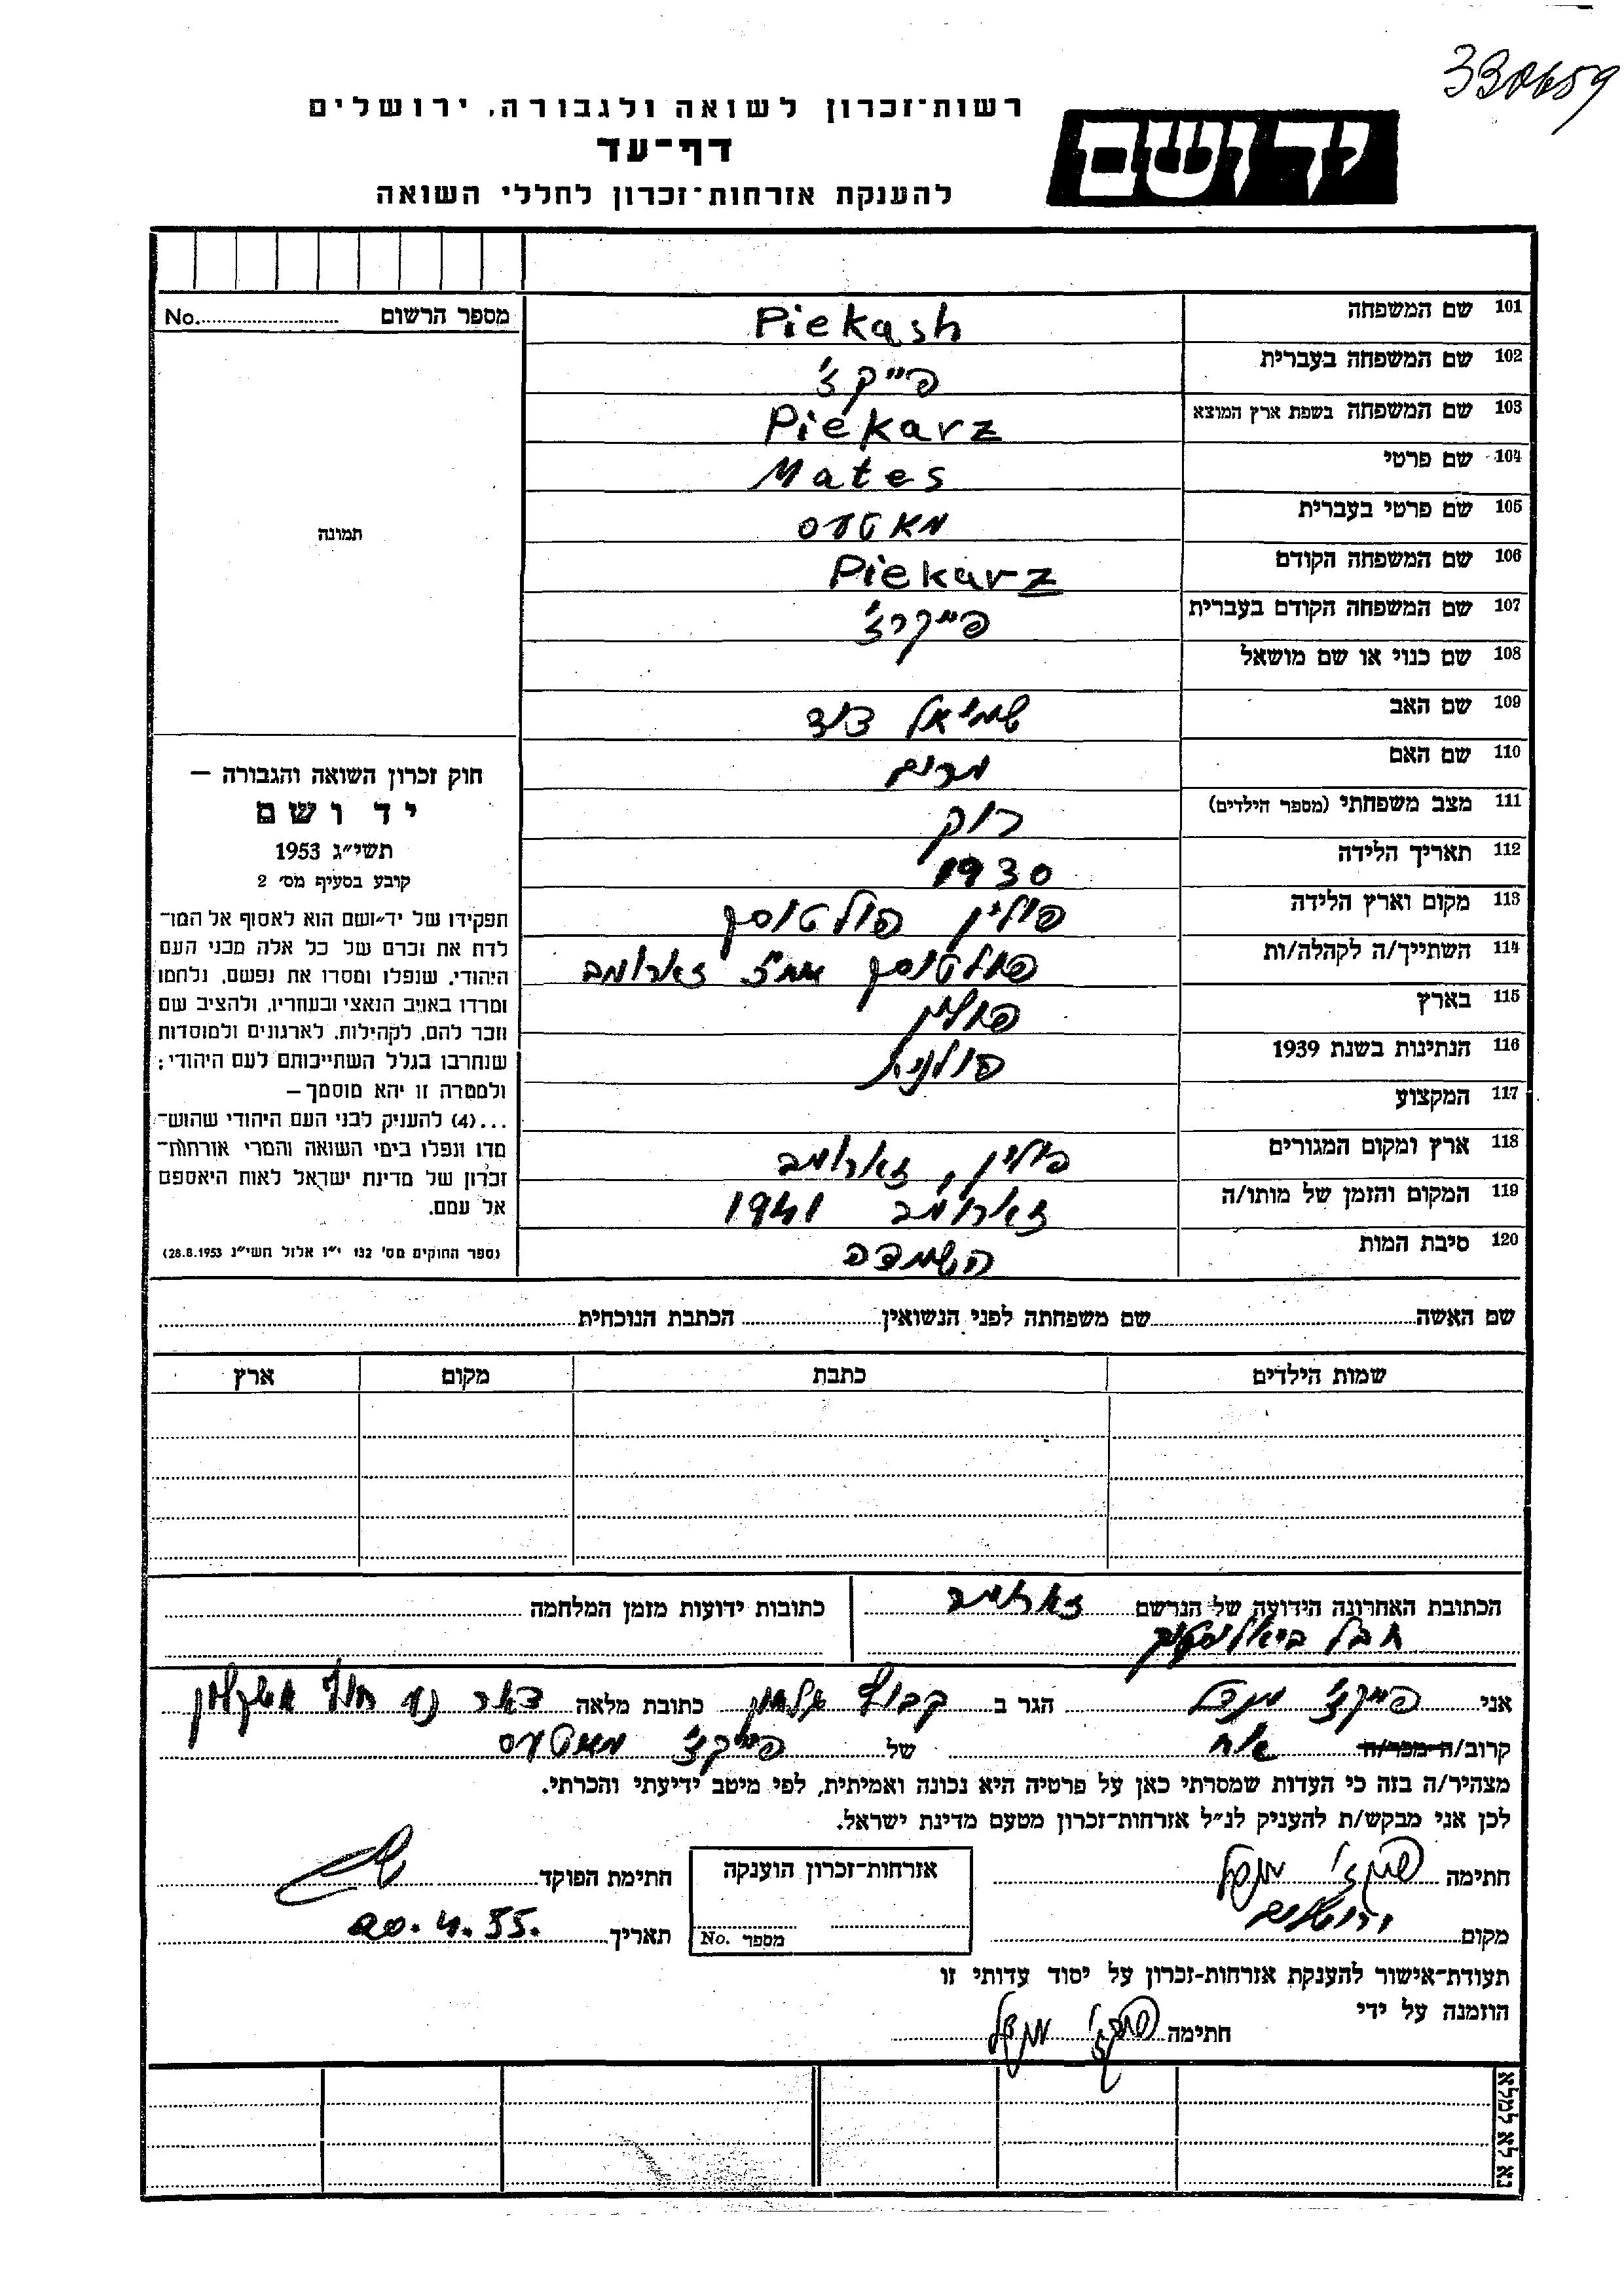 רשות־זכרון לשואה ולגבורה, ירושלים
דף־עד
להענקת אזרחות־זכרון לחללי השואה
יד ושם
101 שם המשפחה Piekash
102 שם המשפחה בעברית פייקז'
103 שם המשפחה בשפת ארץ המוצא Piekarz
104 שם פרטי Mates
105 שם פרטי בעברית מאטעס
106 שם המשפחה הקודם Piekarz
107 שם המשפחה הקודם בעברית פייקרז'
108 שם כנוי או שם מושאל
109 שם האב שמואל דוד
110 שם האם מרים
111 מצב משפחתי (מספר הילדים) רווק
112 תאריך הלידה 1930
113 מקום וארץ הלידה פולין פולטוסק
114 השתייך/ה לקהלה/ות פולטוסק זארומב
115 בארץ פולין
116 הנתינות בשנת 1939 פולנית
117 המקצוע
118 ארץ ומקום המגורים פולין, זארומב
119 המקום והזמן של מותו/ה זארומב 1941
120 סיבת המות השמדה
מספר הרשום No.
תמונה
חוק זכרון השואה והגבורה —
יד ושם
תשי״ג 1953
קובע בסעיף מס׳ 2
תפקידו של יד־ושם הוא לאסוף אל המו־
לדת את זכרם של כל אלה מבני העם
היהודי, שנפלו ומסרו את נפשם, נלחמו
ומרדו באויב הנאצי ובעוזריו, ולהציב שם
וזכר להם, לקהילות, לארגונים ולמוסדות
שנחרבו בגלל השתייכותם לעם היהודי;
ולמטרה זו יהא מוסמך —
...(4) להעניק לבני העם היהודי שהוש־
מדו ונפלו בימי השואה והמרי אזרחות־
זכרון של מדינת ישראל לאות היאספם
אל עמם.
(ספר החוקים מס׳ 132 י״ז אלול תשי״ג 28.8.1953)
שם האשה שם משפחתה לפני הנשואין הכתבת הנוכחית
שמות הילדים כתבת מקום ארץ
הכתובת האחרונה הידועה של הנרשם זארומב
חבל ביאליסטוק
כתובות ידועות מזמן המלחמה
אני פייקז' מנדל הגר ב קבוץ כתובת מלאה דאר נע חוף אשקלון
קרוב/ה מכר/ה אח של פייקז' מאטעס
מצהיר/ה בזה כי העדות שמסרתי כאן על פרטיה היא נכונה ואמיתית, לפי מיטב ידיעתי והכרתי.
לכן אני מבקש/ת להעניק לנ״ל אזרחות־זכרון מטעם מדינת ישראל.
חתימה פייקז' מנדל
אזרחות־זכרון הוענקה
חתימת הפוקד
מקום ירושלים
מספר No.
תאריך 20.4.55.
תעודת־אישור להענקת אזרחות־זכרון על יסוד עדותי זו
הוזמנה על ידי
חתימה פייקז' מנדל
נא לא למלא